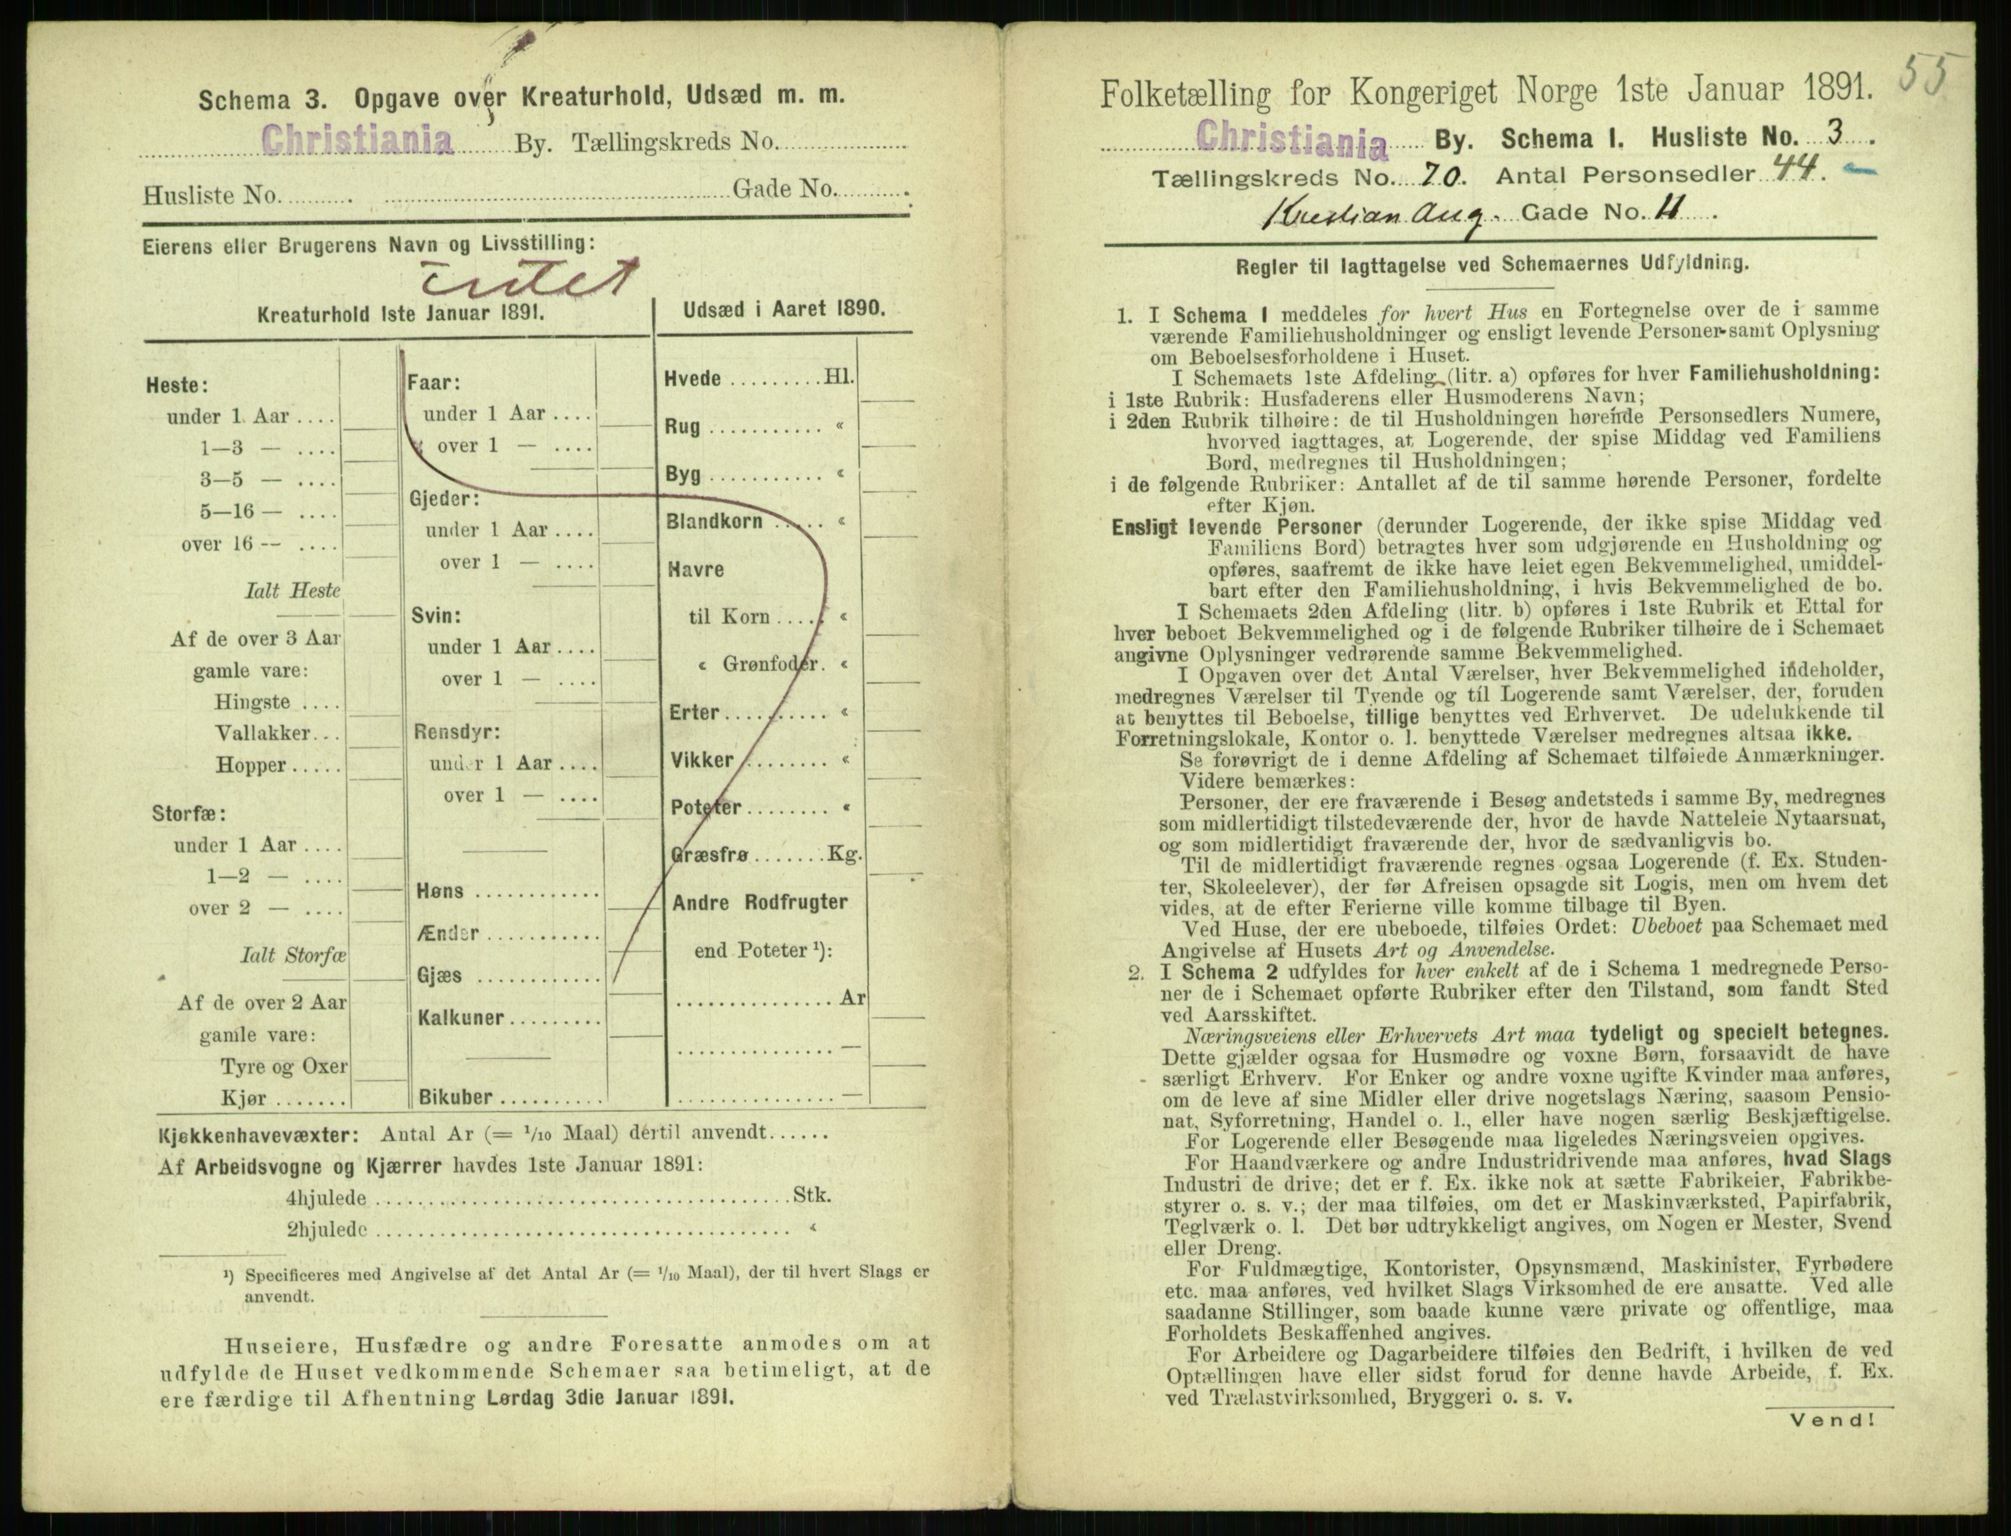 Schema 3. Opgave over Kreaturhold, Udsæd m. m.
Christiania By. Tællingskreds No.
Husliste No. Gade No.
Eierens eller Brugerens Navn og Livsstilling:
intet
Kreaturhold 1ste Januar 1891.
Heste:
under 1 Aar ....
1—3 — ....
3—5 — ....
5—16 — ....
over 16 — ....
Ialt Heste
Af de over 3 Aar
gamle vare:
Hingste ....
Vallakker...
Hopper.....
Storfæ:
under 1 Aar ....
1—2 — ....
over 2 — ....
Ialt Storfæ
Af de over 2 Aar
gamle vare:
Tyre og Oxer
Kjør .......
Faar:
under 1 Aar ....
over 1 — ....
Gjeder:
under 1 Aar ....
over 1 — ....
Svin:
under 1 Aar ....
over 1 — ....
Rensdyr:
under 1 Aar ....
over 1 — ....
Høns ...........
Ænder ...........
Gjæs ...........
Kalkuner .........
Bikuber ..........
Udsæd i Aaret 1890.
Hvede .........Hl.
Rug ........... «
Byg ........... «
Blandkorn ..... «
Havre
til Korn ..... «
« Grønfoder. «
Erter.......... «
Vikker ........ «
Poteter........ «
Græsfrø .......Kg.
Andre Rodfrugter
end Poteter ¹):
............... Ar
............... —
............... —
Kjøkkenhavevæxter: Antal Ar (= 1/10 Maal) dertil anvendt......
Af Arbeidsvogne og Kjærrer havdes 1ste Januar 1891:
4hjulede ....................................Stk.
2hjulede .................................... «
¹) Specificeres med Angivelse af det Antal Ar (= 1/10 Maal), der til hvert Slags er
anvendt.
Huseiere, Husfædre og andre Foresatte anmodes om at
udfylde de Huset vedkommende Schemaer saa betimeligt, at de
ere færdige til Afhentning Lørdag 3die Januar 1891.
55
Folketælling for Kongeriget Norge 1ste Januar 1891.
Christiania By. Schema I. Husliste No. 3.
Tællingskreds No. 20. Antal Personsedler 44. —
Kristian Aug. Gade No. 11.
Regler til Iagttagelse ved Schemaernes Udfyldning.
1. I Schema I meddeles for hvert Hus en Fortegnelse over de i samme
værende Familiehusholdninger og ensligt levende Personer samt Oplysning
om Beboelsesforholdene i Huset.
I Schemaets 1ste Afdeling (litr. a) opføres for hver Familiehusholdning:
i 1ste Rubrik: Husfaderens eller Husmoderens Navn;
i 2den Rubrik tilhøire: de til Husholdningen hørende Personsedlers Numere,
hvorved iagttages, at Logerende, der spise Middag ved Familiens
Bord, medregnes til Husholdningen;
i de følgende Rubriker: Antallet af de til samme hørende Personer, fordelte
efter Kjøn.
Ensligt levende Personer (derunder Logerende, der ikke spise Middag ved
Familiens Bord) betragtes hver som udgjørende en Husholdning og
opføres, saafremt de ikke have leiet egen Bekvemmelighed, umiddel-
bart efter den Familiehusholdning, i hvis Bekvemmelighed de bo.
I Schemaets 2den Afdeling (litr. b) opføres i 1ste Rubrik et Ettal for
hver beboet Bekvemmelighed og i de følgende Rubriker tilhøire de i Schemaet
angivne Oplysninger vedrørende samme Bekvemmelighed.
I Opgaven over det Antal Værelser, hver Bekvemmelighed indeholder,
medregnes Værelser til Tyende og til Logerende samt Værelser, der, foruden
at benyttes til Beboelse, tillige benyttes ved Erhvervet. De udelukkende til
Forretningslokale, Kontor o. l. benyttede Værelser medregnes altsaa ikke.
Se forøvrigt de i denne Afdeling af Schemaet tilføiede Anmærkninger.
Videre bemærkes:
Personer, der ere fraværende i Besøg andetsteds i samme By, medregnes
som midlertidigt tilstedeværende der, hvor de havde Natteleie Nytaarsnat,
og som midlertidigt fraværende der, hvor de sædvanligvis bo.
Til de midlertidigt fraværende regnes ogsaa Logerende (f. Ex. Studen-
ter, Skoleelever), der før Afreisen opsagde sit Logis, men om hvem det
vides, at de efter Ferierne ville komme tilbage til Byen.
Ved Huse, der ere ubeboede, tilføies Ordet: Ubeboet paa Schemaet med
Angivelse af Husets Art og Anvendelse.
2. I Schema 2 udfyldes for hver enkelt af de i Schema 1 medregnede Perso-
ner de i Schemaet opførte Rubriker efter den Tilstand, som fandt Sted
ved Aarsskiftet.
Næringsveiens eller Erhvervets Art maa tydeligt og specielt betegnes.
Dette gjælder ogsaa for Husmødre og voxne Børn, forsaavidt de have
særligt Erhverv. For Enker og andre voxne ugifte Kvinder maa anføres,
om de leve af sine Midler eller drive nogetslags Næring, saasom Pensio-
nat, Syforretning, Handel o. l., eller have nogen særlig Beskjæftigelse.
For Logerende eller Besøgende maa ligeledes Næringsveien opgives.
For Haandværkere og andre Industridrivende maa anføres, hvad Slags
Industri de drive; det er f. Ex. ikke nok at sætte Fabrikeier, Fabrikbe-
styrer o. s. v.; der maa tilføies, om det er Maskinværksted, Papirfabrik,
Teglværk o. l. Det bør udtrykkeligt angives, om Nogen er Mester, Svend
eller Dreng.
For Fuldmægtige, Kontorister, Opsynsmænd, Maskinister, Fyrbødere
etc. maa anføres, ved hvilket Slags Virksomhed de ere ansatte. Ved alle
saadanne Stillinger, som baade kunne være private og offentlige, maa
Forholdets Beskaffenhed angives.
For Arbeidere og Dagarbeidere tilføies den Bedrift, i hvilken de ved
Optællingen have eller sidst forud for denne havde Arbeide, f. Ex.
ved Trælastvirksomhed, Bryggeri o. s. v.
Vend!